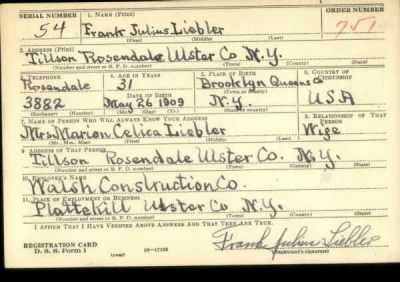 SERIAL NUMBER 1. NAME (Print) ORDER NUMBER
54 Frank Julius Liebler 751
(First) (Middle) (Last)
2. ADDRESS (Print)
Tillson Rosendale Ulster Co N.Y.
(Number and street or R. F. D. number) (Town) (County) (State)
3. TELEPHONE 4. AGE IN YEARS 5. PLACE OF BIRTH 6. COUNTRY OF CITIZENSHIP
Rosendale 31 Brooklyn Queens Co
(Exchange) DATE OF BIRTH (Town or county)
3882 May 26 1909 N.Y. USA
(Number) (Mo.) (Day) (Yr.) (State or country)
7. NAME OF PERSON WHO WILL ALWAYS KNOW YOUR ADDRESS 8. RELATIONSHIP OF THAT PERSON
Mrs Marion Celica Liebler Wife
(Mr., Mrs., Miss) (First) (Middle) (Last)
9. ADDRESS OF THAT PERSON
Tillson Rosendale Ulster Co. N.Y.
(Number and street or R. F. D. number) (Town) (County) (State)
10. EMPLOYER'S NAME
Walsh Construction Co.
11. PLACE OF EMPLOYMENT OR BUSINESS
Plattekill Ulster Co N.Y.
(Number and street or R. F. D. number) (Town) (County) (State)
I AFFIRM THAT I HAVE VERIFIED ABOVE ANSWERS AND THAT THEY ARE TRUE.
REGISTRATION CARD
D. S. S. Form 1 16—17105 Frank Julius Liebler
(Registrant's signature)